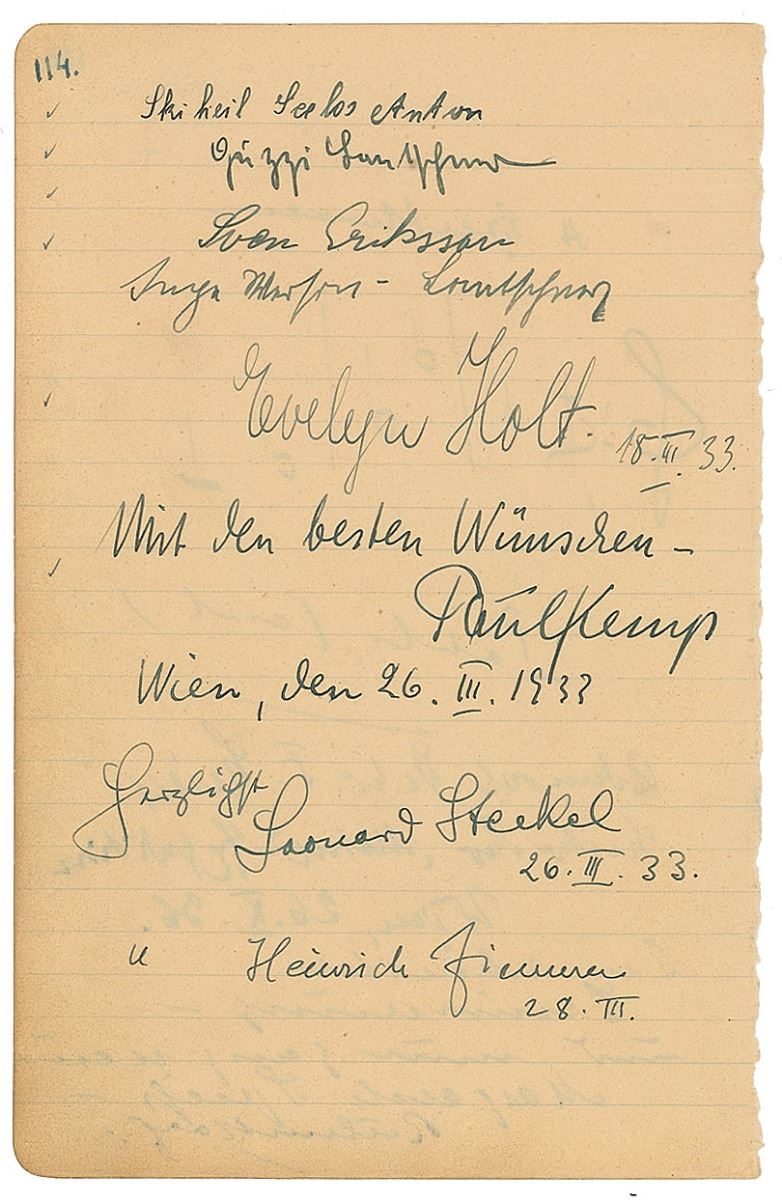 114.
Ski heil Seelos Anton
Guzzi Lantschner
Sven Eriksson
Inge Wersin-Lantschner
Evelyn Holt. 18.III.33.
Mit den besten Wünschen -
Paul Kemp
Wien, den 26. III. 1933
Herzlichst
Leonard Steckel
26. III. 33.
" Heinrich
28. III.